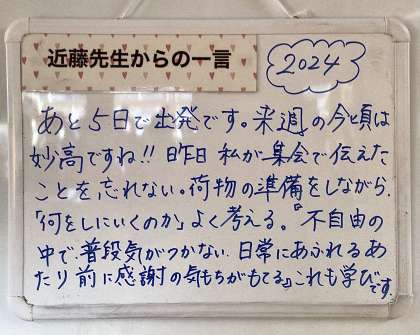 近藤先生からの一言
2024
あと5日で出発です。来週の今頃は
妙高ですね!! 昨日 私が集会で伝えた
ことを忘れない。荷物の準備をしながら、
「何をしにいくのか」よく考える。『不自由の
中で、普段気がつかない 日常にあふれるあ
たり前に感謝の気もちがもてる』これも学びです。